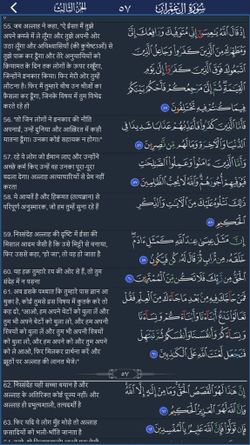 الجزء الثالث
٥٧
سورة آل عمران
55. जब अल्लाह ने कहा, "ऐ ईसा! मैं तुझे
अपने क़ब्ज़े में ले लूँगा और तुझे अपनी ओर
उठा लूँगा और अविश्वासियों (की कुचेष्टाओं) से
तुझे पाक कर दूँगा और तेरे अनुयायियों को
क़ियामत के दिन तक लोगों के ऊपर रखूँगा,
जिन्होंने इनकार किया। फिर मेरी ओर तुम्हें
लौटना है। फिर मैं तुम्हारे बीच उन चीज़ों का
फ़ैसला कर दूँगा, जिनके विषय में तुम विभेद
करते रहे हो
56. "तो जिन लोगों ने इनकार की नीति
अपनाई, उन्हें दुनिया और आख़िरत में कड़ी
यातना दूँगा। उनका कोई सहायक न होगा।"
57. रहे वे लोग जो ईमान लाए और उन्होंने
अच्छे कर्म किए उन्हें वह उनका पूरा-पूरा
बदला देगा। अल्लाह अत्याचारियों से प्रेम नहीं
करता
58. ये आयतें है और हिकमत (तत्वज्ञान) से
परिपूर्ण अनुस्मारक, जो हम तुम्हें सुना रहे हैं
59. निस्संदेह अल्लाह की दृष्टि में ईसा की
मिसाल आदम जैसी है कि उसे मिट्टी से बनाया,
फिर उससे कहा, "हो जा", तो वह हो जाता है
60. यह हक़ तुम्हारे रब की ओर से हैं, तो तुम
संदेह में न पड़ना
61. अब इसके पश्चात कि तुम्हारे पास ज्ञान आ
चुका है, कोई तुमसे इस विषय में कुतर्क करे तो
कह दो, "आओ, हम अपने बेटों को बुला लें और
तुम भी अपने बेटों को बुला लो, और हम अपनी
स्त्रियों को बुला लें और तुम भी अपनी स्त्रियों
को बुला लो, और हम अपने को और तुम अपने
को ले आओ, फिर मिलकर प्रार्थना करें और
झूठों पर अल्लाह की लानत भेजे।"
62. निस्संदेह यही सच्चा बयान है और
अल्लाह के अतिरिक्त कोई पूज्य नहीं। और
अल्लाह ही प्रभुत्वशाली, तत्वदर्शी है
63. फिर यदि वे लोग मुँह मोड़े तो अल्लाह
फ़सादियों को भली-भाँति जानता है
إِذْ قَالَ اللَّهُ يَا عِيسَىٰ إِنِّي مُتَوَفِّيكَ وَرَافِعُكَ إِلَيَّ
وَمُطَهِّرُكَ مِنَ الَّذِينَ كَفَرُوا وَجَاعِلُ الَّذِينَ
اتَّبَعُوكَ فَوْقَ الَّذِينَ كَفَرُوا إِلَىٰ يَوْمِ
الْقِيَامَةِ ثُمَّ إِلَيَّ مَرْجِعُكُمْ فَأَحْكُمُ بَيْنَكُمْ
فِيمَا كُنتُمْ فِيهِ تَخْتَلِفُونَ
فَأَمَّا الَّذِينَ كَفَرُوا فَأُعَذِّبُهُمْ عَذَابًا شَدِيدًا فِي
الدُّنْيَا وَالْآخِرَةِ وَمَا لَهُم مِّن نَّاصِرِينَ
وَأَمَّا الَّذِينَ آمَنُوا وَعَمِلُوا الصَّالِحَاتِ
فَيُوَفِّيهِمْ أُجُورَهُمْ وَاللَّهُ لَا يُحِبُّ الظَّالِمِينَ
ذَٰلِكَ نَتْلُوهُ عَلَيْكَ مِنَ الْآيَاتِ وَالذِّكْرِ
الْحَكِيمِ
إِنَّ مَثَلَ عِيسَىٰ عِندَ اللَّهِ كَمَثَلِ آدَمَ
خَلَقَهُ مِن تُرَابٍ ثُمَّ قَالَ لَهُ كُن فَيَكُونُ
الْحَقُّ مِن رَّبِّكَ فَلَا تَكُن مِّنَ الْمُمْتَرِينَ
فَمَنْ حَاجَّكَ فِيهِ مِن بَعْدِ مَا جَاءَكَ مِنَ الْعِلْمِ فَقُلْ
تَعَالَوْا نَدْعُ أَبْنَاءَنَا وَأَبْنَاءَكُمْ وَنِسَاءَنَا
وَنِسَاءَكُمْ وَأَنفُسَنَا وَأَنفُسَكُمْ ثُمَّ نَبْتَهِلْ
فَنَجْعَل لَّعْنَتَ اللَّهِ عَلَى الْكَاذِبِينَ
٥٧
إِنَّ هَٰذَا لَهُوَ الْقَصَصُ الْحَقُّ وَمَا مِنْ إِلَٰهٍ إِلَّا اللَّهُ
وَإِنَّ اللَّهَ لَهُوَ الْعَزِيزُ الْحَكِيمُ
فَإِن تَوَلَّوْا فَإِنَّ اللَّهَ عَلِيمٌ بِالْمُفْسِدِينَ